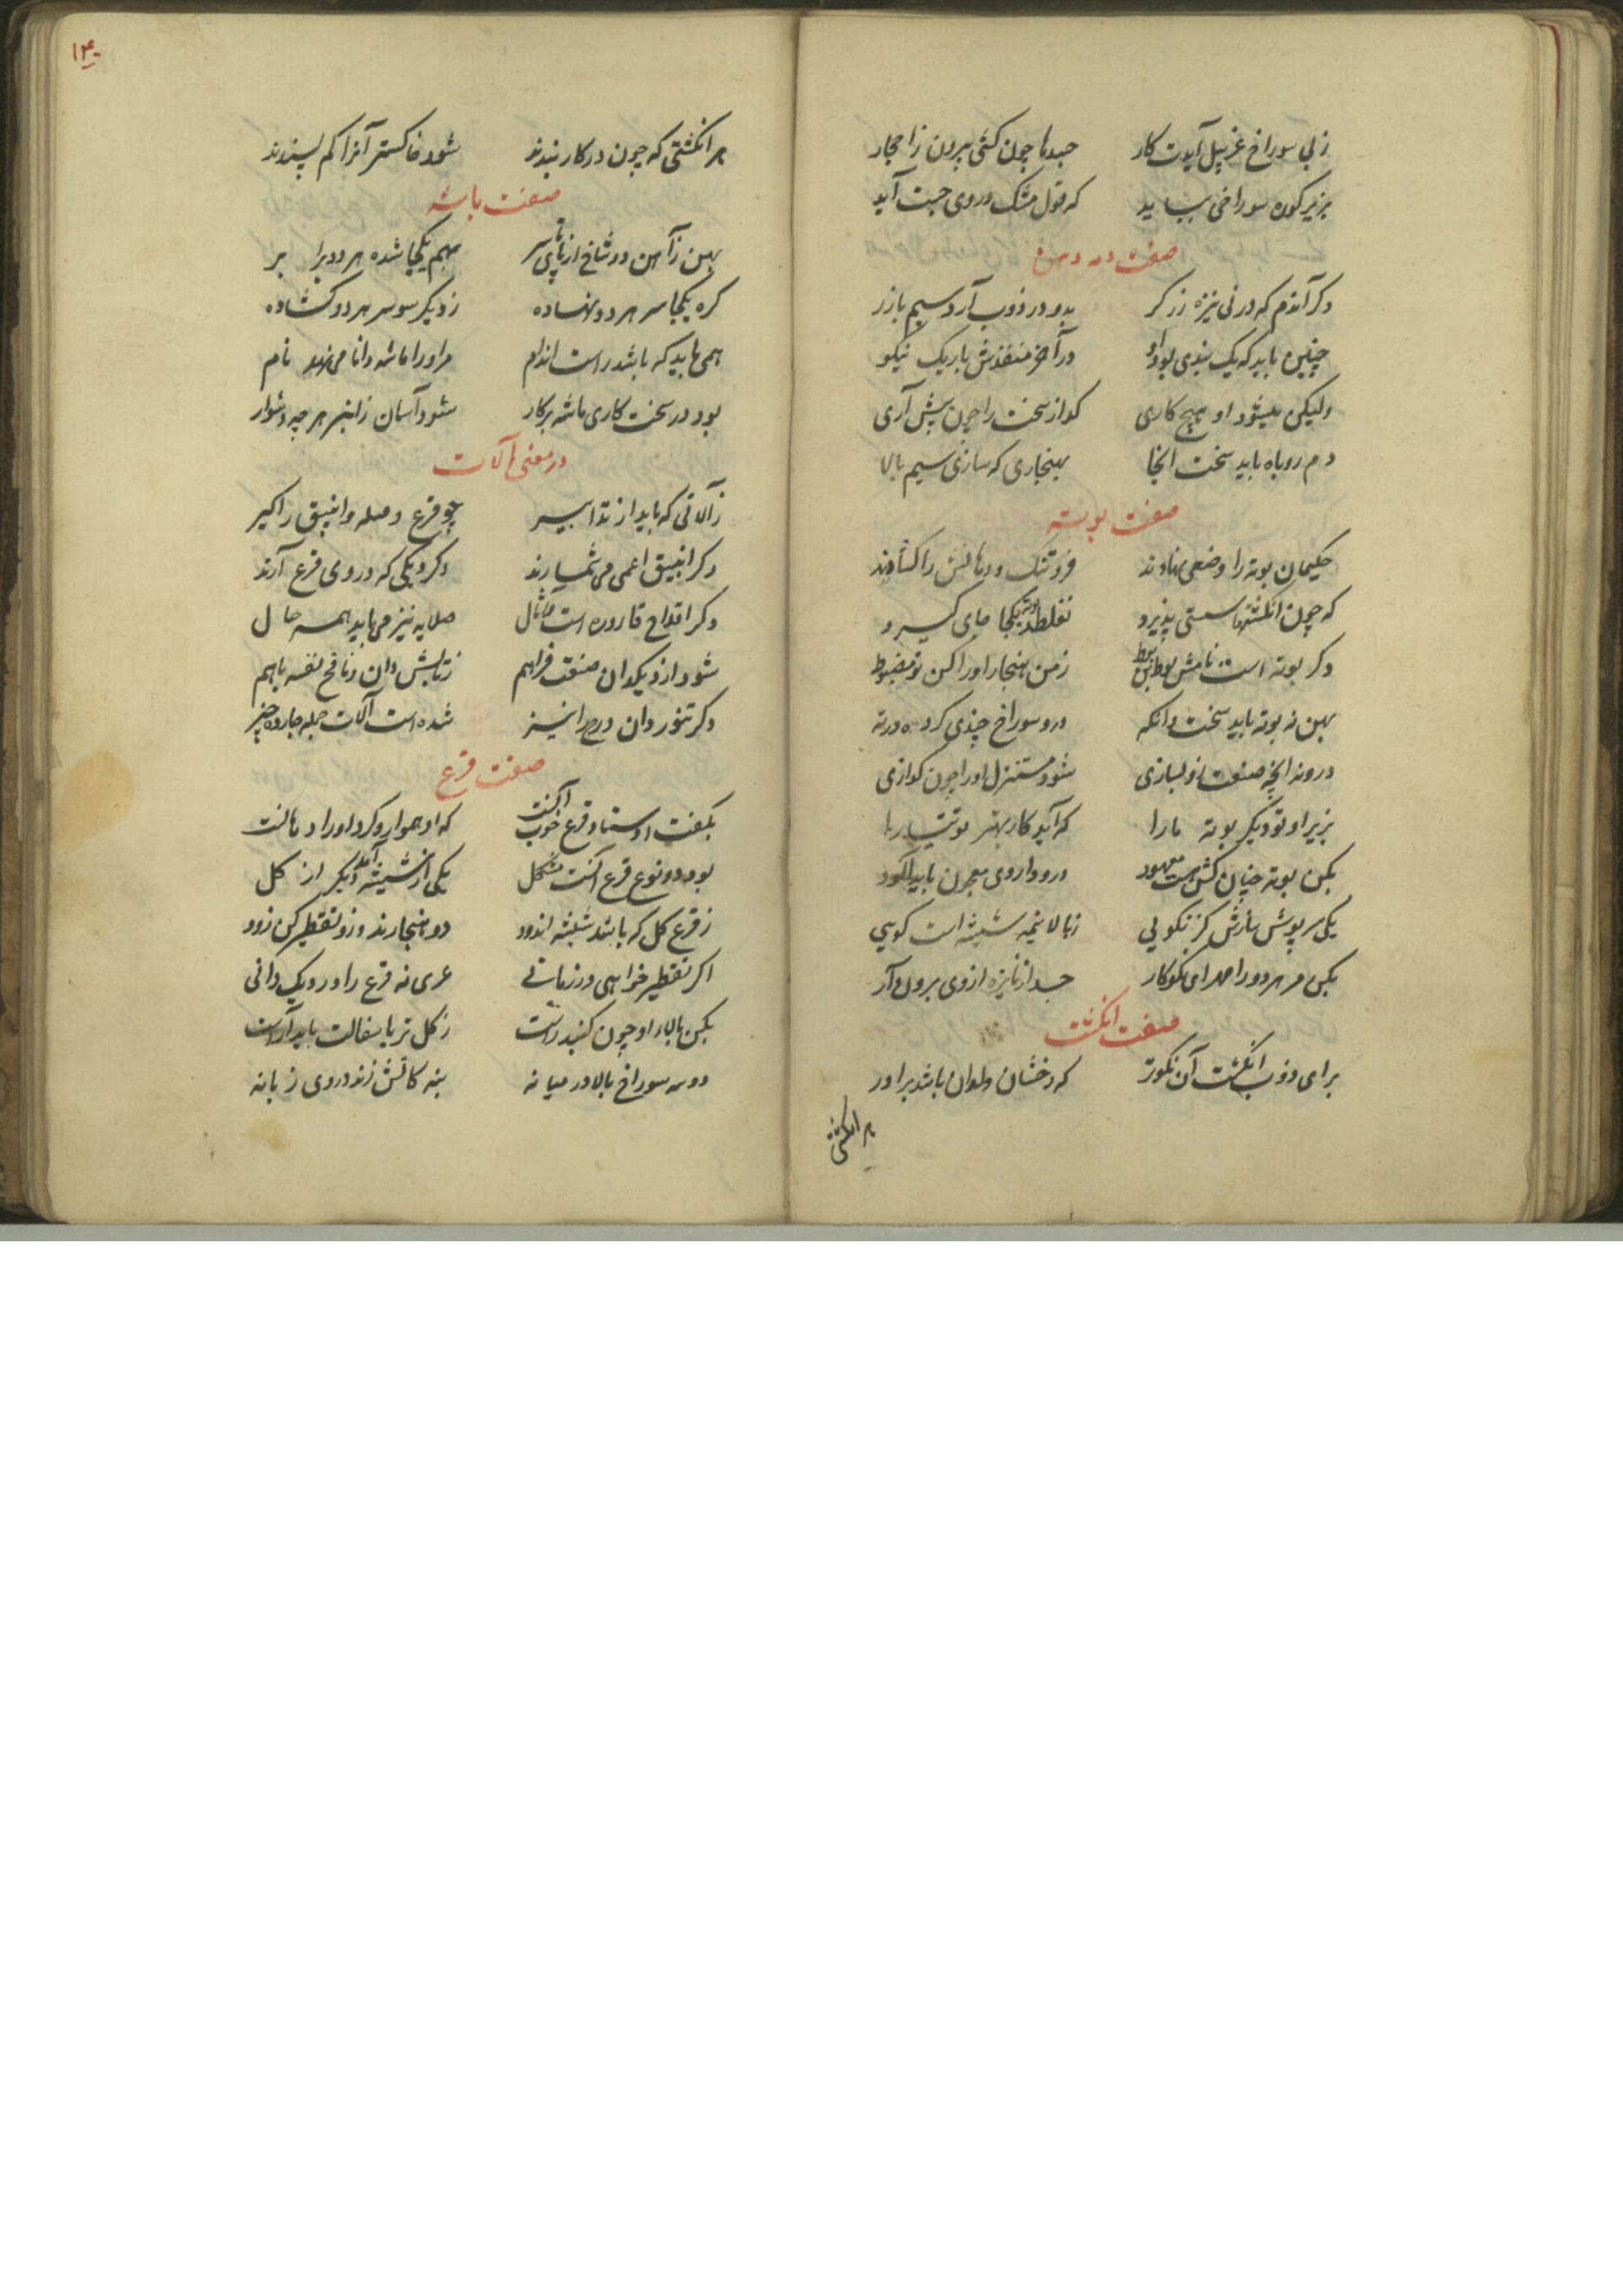 زبی سوراخ غربیل آیدت کار جسدها چون کشی بیرون ز احجار
بزیر کوره سوراخی بباید که قول مشک در وی چست آید
صفت دمه دهن
دکر آندم که در نی نیزه زرکر بدو در ذوب آرد سیم با زر
چنین باید که یک بندی بود او در آخر منفذش باریک نیکو
ولیکن او هیچ کاری کداز سخت را چون پیش آری
دم روباه باید سخت آنجا بهنجاری که سازی سیم بالا
صفت بوته
حکیمان بوته را وضعی نهادند فرو تنک و دهانش را کشادند
که چون انکشتها سستی پذیرد نغلطد بوته یکجا جای کیرد
دکر بوته است نامش بوط بربوط ز من هنجار او را کن تو مضبوط
بهین نه بوته باید سخت دانکه درو سوراخ چندی کرده در ته
درو نه آنچه صنعت زو بسازی شود مستنزل او را چون کدازی
بزیر او تو دیکر بوته ما را که آید کار بهتر
بکن بوته چنان کش هست معهود درو داروی معجون باید آلود
یکی سرپوش سازش کز نکویی ز بالا نیمه شیشه است کویی
بکن مر هر دو را ای نکوکار جسد از نایزه از وی برون آر
صفت انکشت
برای ذوب انکشت آن نکوتر که رخشان و باشد برادر
هر انکشتی
۱۴۰
هر انکشتی که چون در کار بندند شود خاکستر آنرا کم پسندند
صفت ماشه
بهین ز آهن دو شاخ از پای تا سر بهم یکجا شده هر دو برابر
کره یکجا سر هر دو نهاده ز دیکر سو سر هر دو کشاده
همی باید که باشد راست اندام مر او را ماشه دانا می نهد نام
بود در سخت کاری ماشه بر کار شود آسان ز انبر هر چه دشوار
در معنی آلات
ز آلاتی که باید از تدابیر چو قرع و صله و انبیق را کیر
دکر انبیق اعمی می شمارند دکر دیکی که در وی قرع آرند
دکر اقداح قاروره است صلایه نیز می باید همه حال
شود از دیکدان صنعت فراهم ز تابش دان و نافخ نفسه باهم
دکر تنور دان نیز شده است آلات جمله چارده چیز
صفت قرع
بکفت اوستاد قرع خوب آنکشت که او هموار و کرد او را
بود دو نوع قرع انکشت مشکل یکی از شیشه آمد دیکر از کل
ز قرع کل که باشد شیشه اندود دو هنجارند و زو تقطیر کن زود
اکر تقطیر خواهی در زمانی عری نه قرع را در ویک دانی
بکن بالای او چون کنبد راست ز کل تر یا سفالت باید آراست
دو سه سوراخ بالا در میانه بنه کاتش زند در وی زبانه